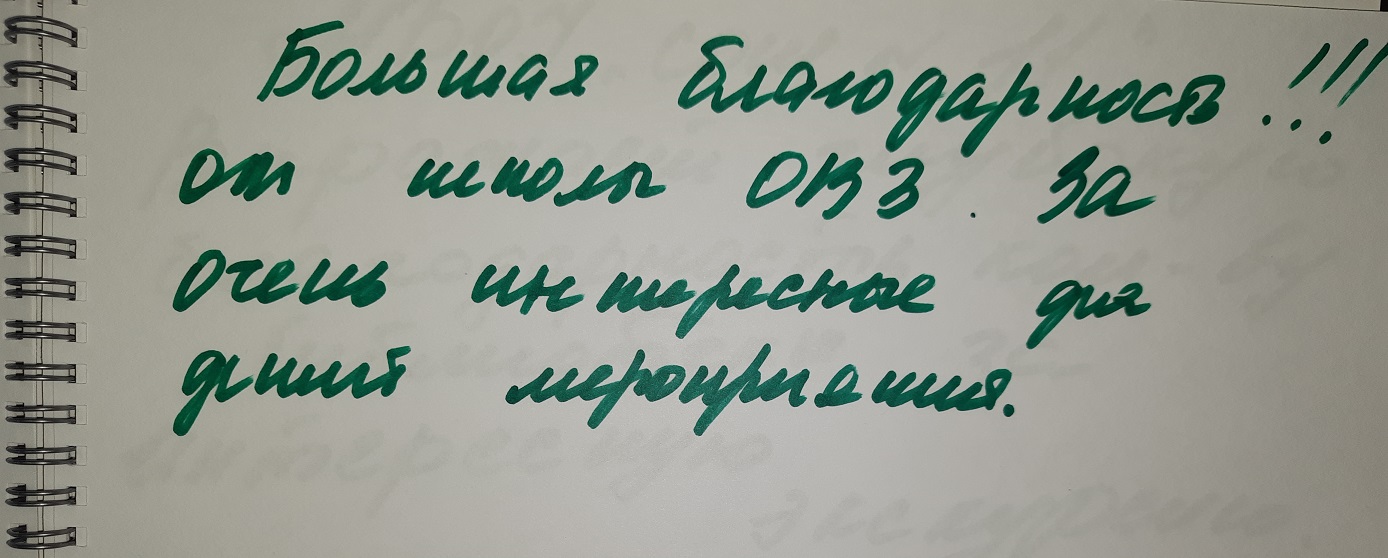 Большая благодарность!!!
от школы ОВЗ. За
очень интересные для
детей мероприятия.